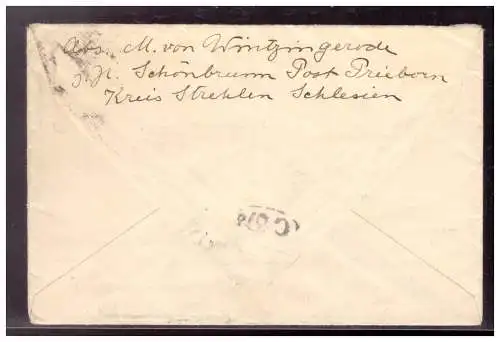 Abs. M. von Wintzingerode
z. Zt. Schönbrunn Post Prieborn
Kreis Strehlen Schlesien